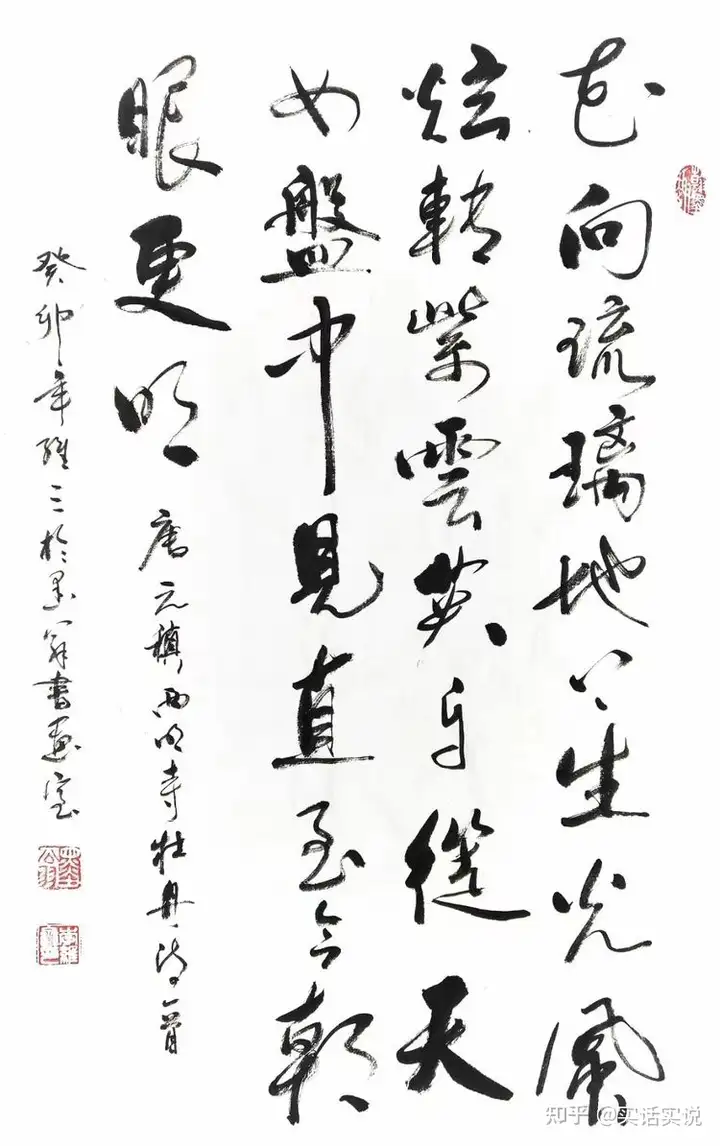 花向琉璃地上生光風
炫轉紫雲英自從天
女盤中見直至今朝
眼更明
唐元稹西明寺牡丹詩一首
癸卯年維三於墨翁書畫室
知乎 @实话实说